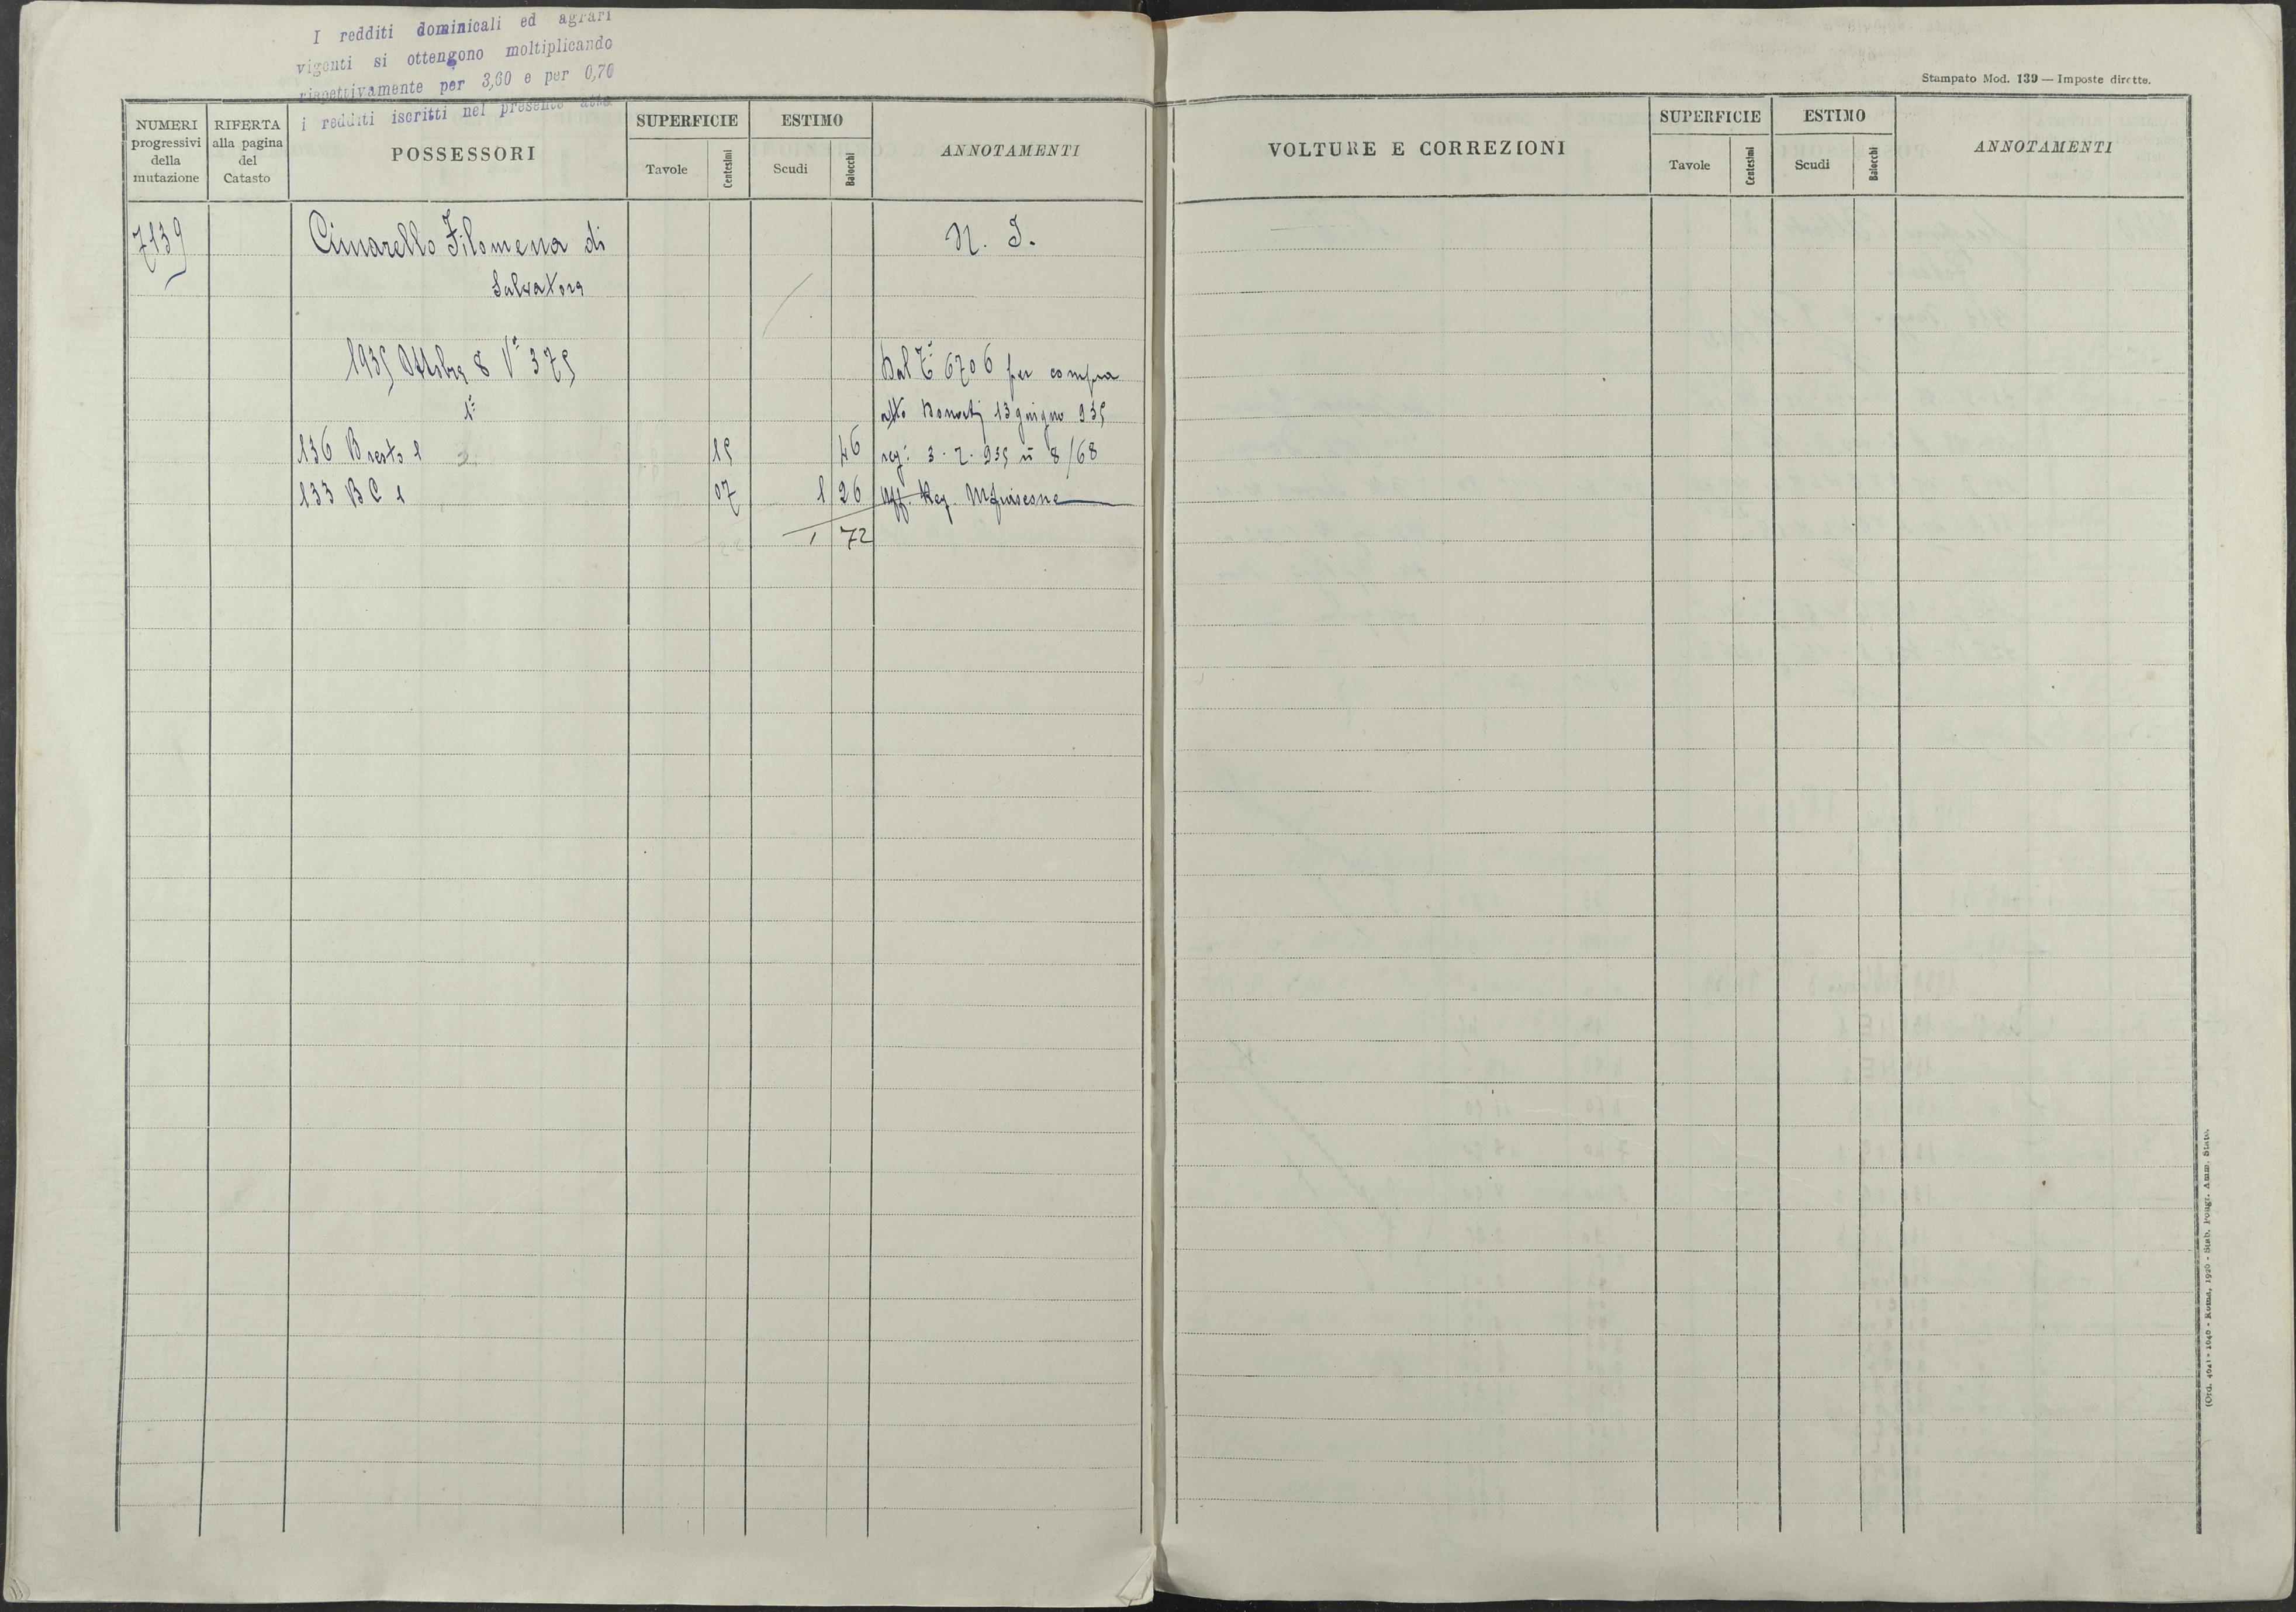 I redditi dominicali ed agrari
vigenti si ottengono moltiplicando
rispettivamente per 3,60 e per 0,70
i redditi iscritti nel presente atto
Stampato Mod. 139 — Imposte dirette.
NUMERI progressivi della mutazione
RIFERTA alla pagina del Catasto
POSSESSORI
SUPERFICIE
Tavole
Centesimi
ESTIMO
Scudi
Baiocchi
ANNOTAMENTI
VOLTURE E CORREZIONI
SUPERFICIE
Tavole
Centesimi
ESTIMO
Scudi
Baiocchi
ANNOTAMENTI
7139 Cimarello Filomena di N. I.
Salvatore
1935 Ottobre 8 Vª 375 Dal Tº 6706 per compra
1ª atto Donati 13 giugno 935
136 B resto 1 15 46 reg: 3.7.935 n 8/68
133 B C 1 07 1 26 Uff. Reg.
1 72
(Ord. 4041 - 1640 - Roma, 1926 - Stab. Poligr. Amm. Stato.